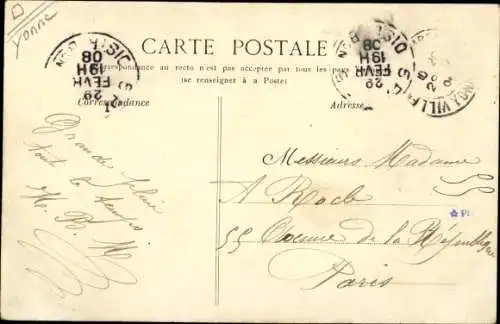 Yonne
CARTE POSTALE
Correspondance au recto n'est pas acceptée par tous les pays
(se renseigner à la Poste)
Correspondance
Adresse
29
FEVR
19H
08
29
FEVR
19H
08
Grande
tout le temps
M. R. M.
Messieurs Madame
A Roche
55 Avenue de la République
Paris